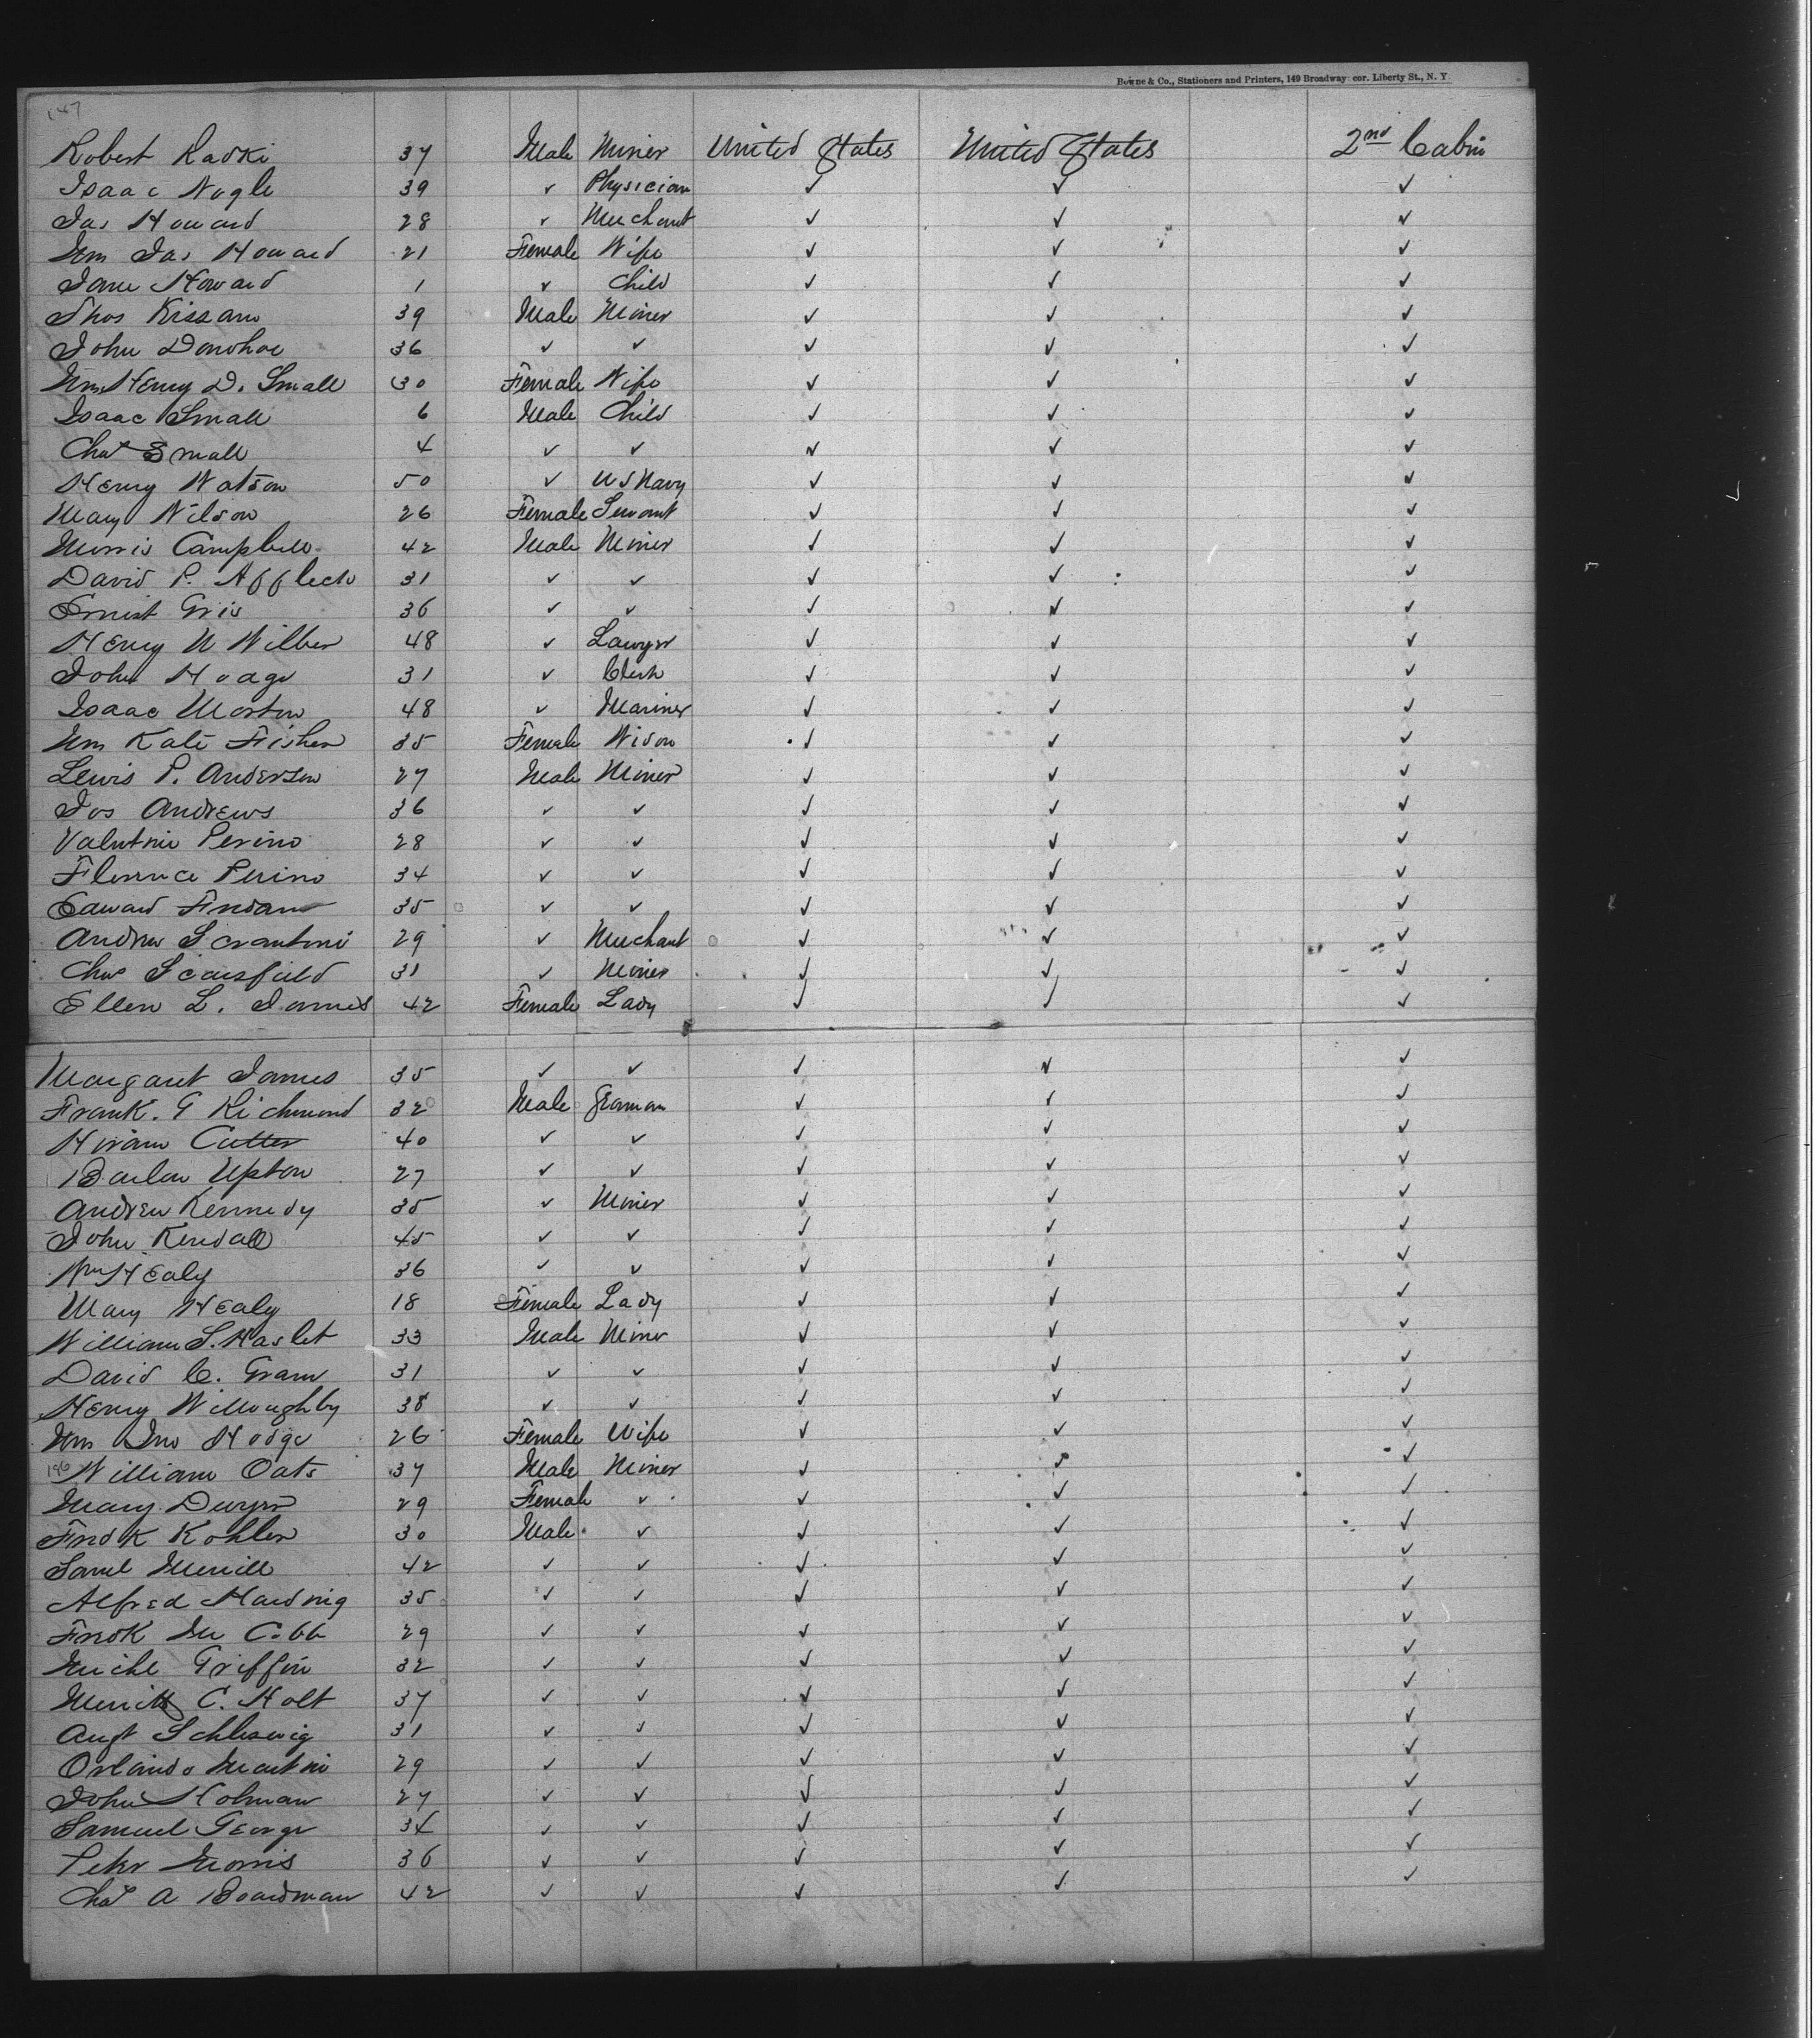 Bowne & Co., Stationers and Printers, 149 Broadway cor. Liberty St., N. Y.
147
Robert Radki 37 Male Miner United States United States 2nd Cabin
Isaac Nogle 39 ✓ Physician ✓ ✓ ✓
Jas Howard 28 ✓ Merchant ✓ ✓ ✓
Mrs Jas Howard 21 Female Wife ✓ ✓ ✓
Jane Howard 1 ✓ Child ✓ ✓ ✓
Thos Kissam 39 Male Miner ✓ ✓ ✓
John Donohoe 36 ✓ ✓ ✓ ✓ ✓
Mrs Henry D. Small 30 Female Wife ✓ ✓ ✓
Isaac Small 6 Male Child ✓ ✓ ✓
Chas Small 4 ✓ ✓ ✓ ✓ ✓
Henry Watson 50 ✓ US Navy ✓ ✓ ✓
Mary Wilson 26 Female Servant ✓ ✓ ✓
Morris Campbell 42 Male Miner ✓ ✓ ✓
David P. Affleck 31 ✓ ✓ ✓ ✓ ✓
Ernest Gris 36 ✓ ✓ ✓ ✓ ✓
Henry N Wilber 48 ✓ Lawyer ✓ ✓ ✓
John Hoage 31 ✓ Clerk ✓ ✓ ✓
Isaac Morton 48 ✓ Mariner ✓ ✓ ✓
Mrs Kate Fisher 35 Female Widow ✓ ✓ ✓
Lewis P. Anderson 27 Male Miner ✓ ✓ ✓
Jos Andrews 36 ✓ ✓ ✓ ✓ ✓
Valentine Perino 28 ✓ ✓ ✓ ✓ ✓
Florence Perino 34 ✓ ✓ ✓ ✓ ✓
Edward 35 ✓ ✓ ✓ ✓ ✓
Andrew Scrantoni 29 ✓ Merchant ✓ ✓ ✓
Chas Scarsfield 31 ✓ Miner ✓ ✓ ✓
Ellen L. James 42 Female Lady ✓ ✓ ✓
Margaret James 35 ✓ ✓ ✓ ✓ ✓
Frank. G Richmond 32 Male Seaman ✓ ✓ ✓
Hiram Cutter 40 ✓ ✓ ✓ ✓ ✓
Barlow Upton 27 ✓ ✓ ✓ ✓ ✓
Andrew Kennedy 35 ✓ Miner ✓ ✓ ✓
John Kendall 45 ✓ ✓ ✓ ✓ ✓
Wm Healy 36 ✓ ✓ ✓ ✓ ✓
Mary Healy 18 Female Lady ✓ ✓ ✓
William S. Haslet 33 Male Miner ✓ ✓ ✓
David C. Gram 31 ✓ ✓ ✓ ✓ ✓
Henry Willoughby 38 ✓ ✓ ✓ ✓ ✓
Mrs Jno Hodge 26 Female Wife ✓ ✓ ✓
146 William Oats 37 Male Miner ✓ ✓ ✓
Mary Dwyer 29 Female ✓ ✓ ✓ ✓
Fredk Kohler 30 Male ✓ ✓ ✓ ✓
Saml Merrill 42 ✓ ✓ ✓ ✓ ✓
Alfred Harding 35 ✓ ✓ ✓ ✓ ✓
Fredk Mc Cobb 29 ✓ ✓ ✓ ✓ ✓
Michl Griffin 32 ✓ ✓ ✓ ✓ ✓
Merritt C. Holt 37 ✓ ✓ ✓ ✓ ✓
Augt Schleswig 31 ✓ ✓ ✓ ✓ ✓
Orlando Martini 29 ✓ ✓ ✓ ✓ ✓
John Holman 27 ✓ ✓ ✓ ✓ ✓
Samuel George 34 ✓ ✓ ✓ ✓ ✓
Peter Morris 36 ✓ ✓ ✓ ✓ ✓
Chas A Boardman 42 ✓ ✓ ✓ ✓ ✓